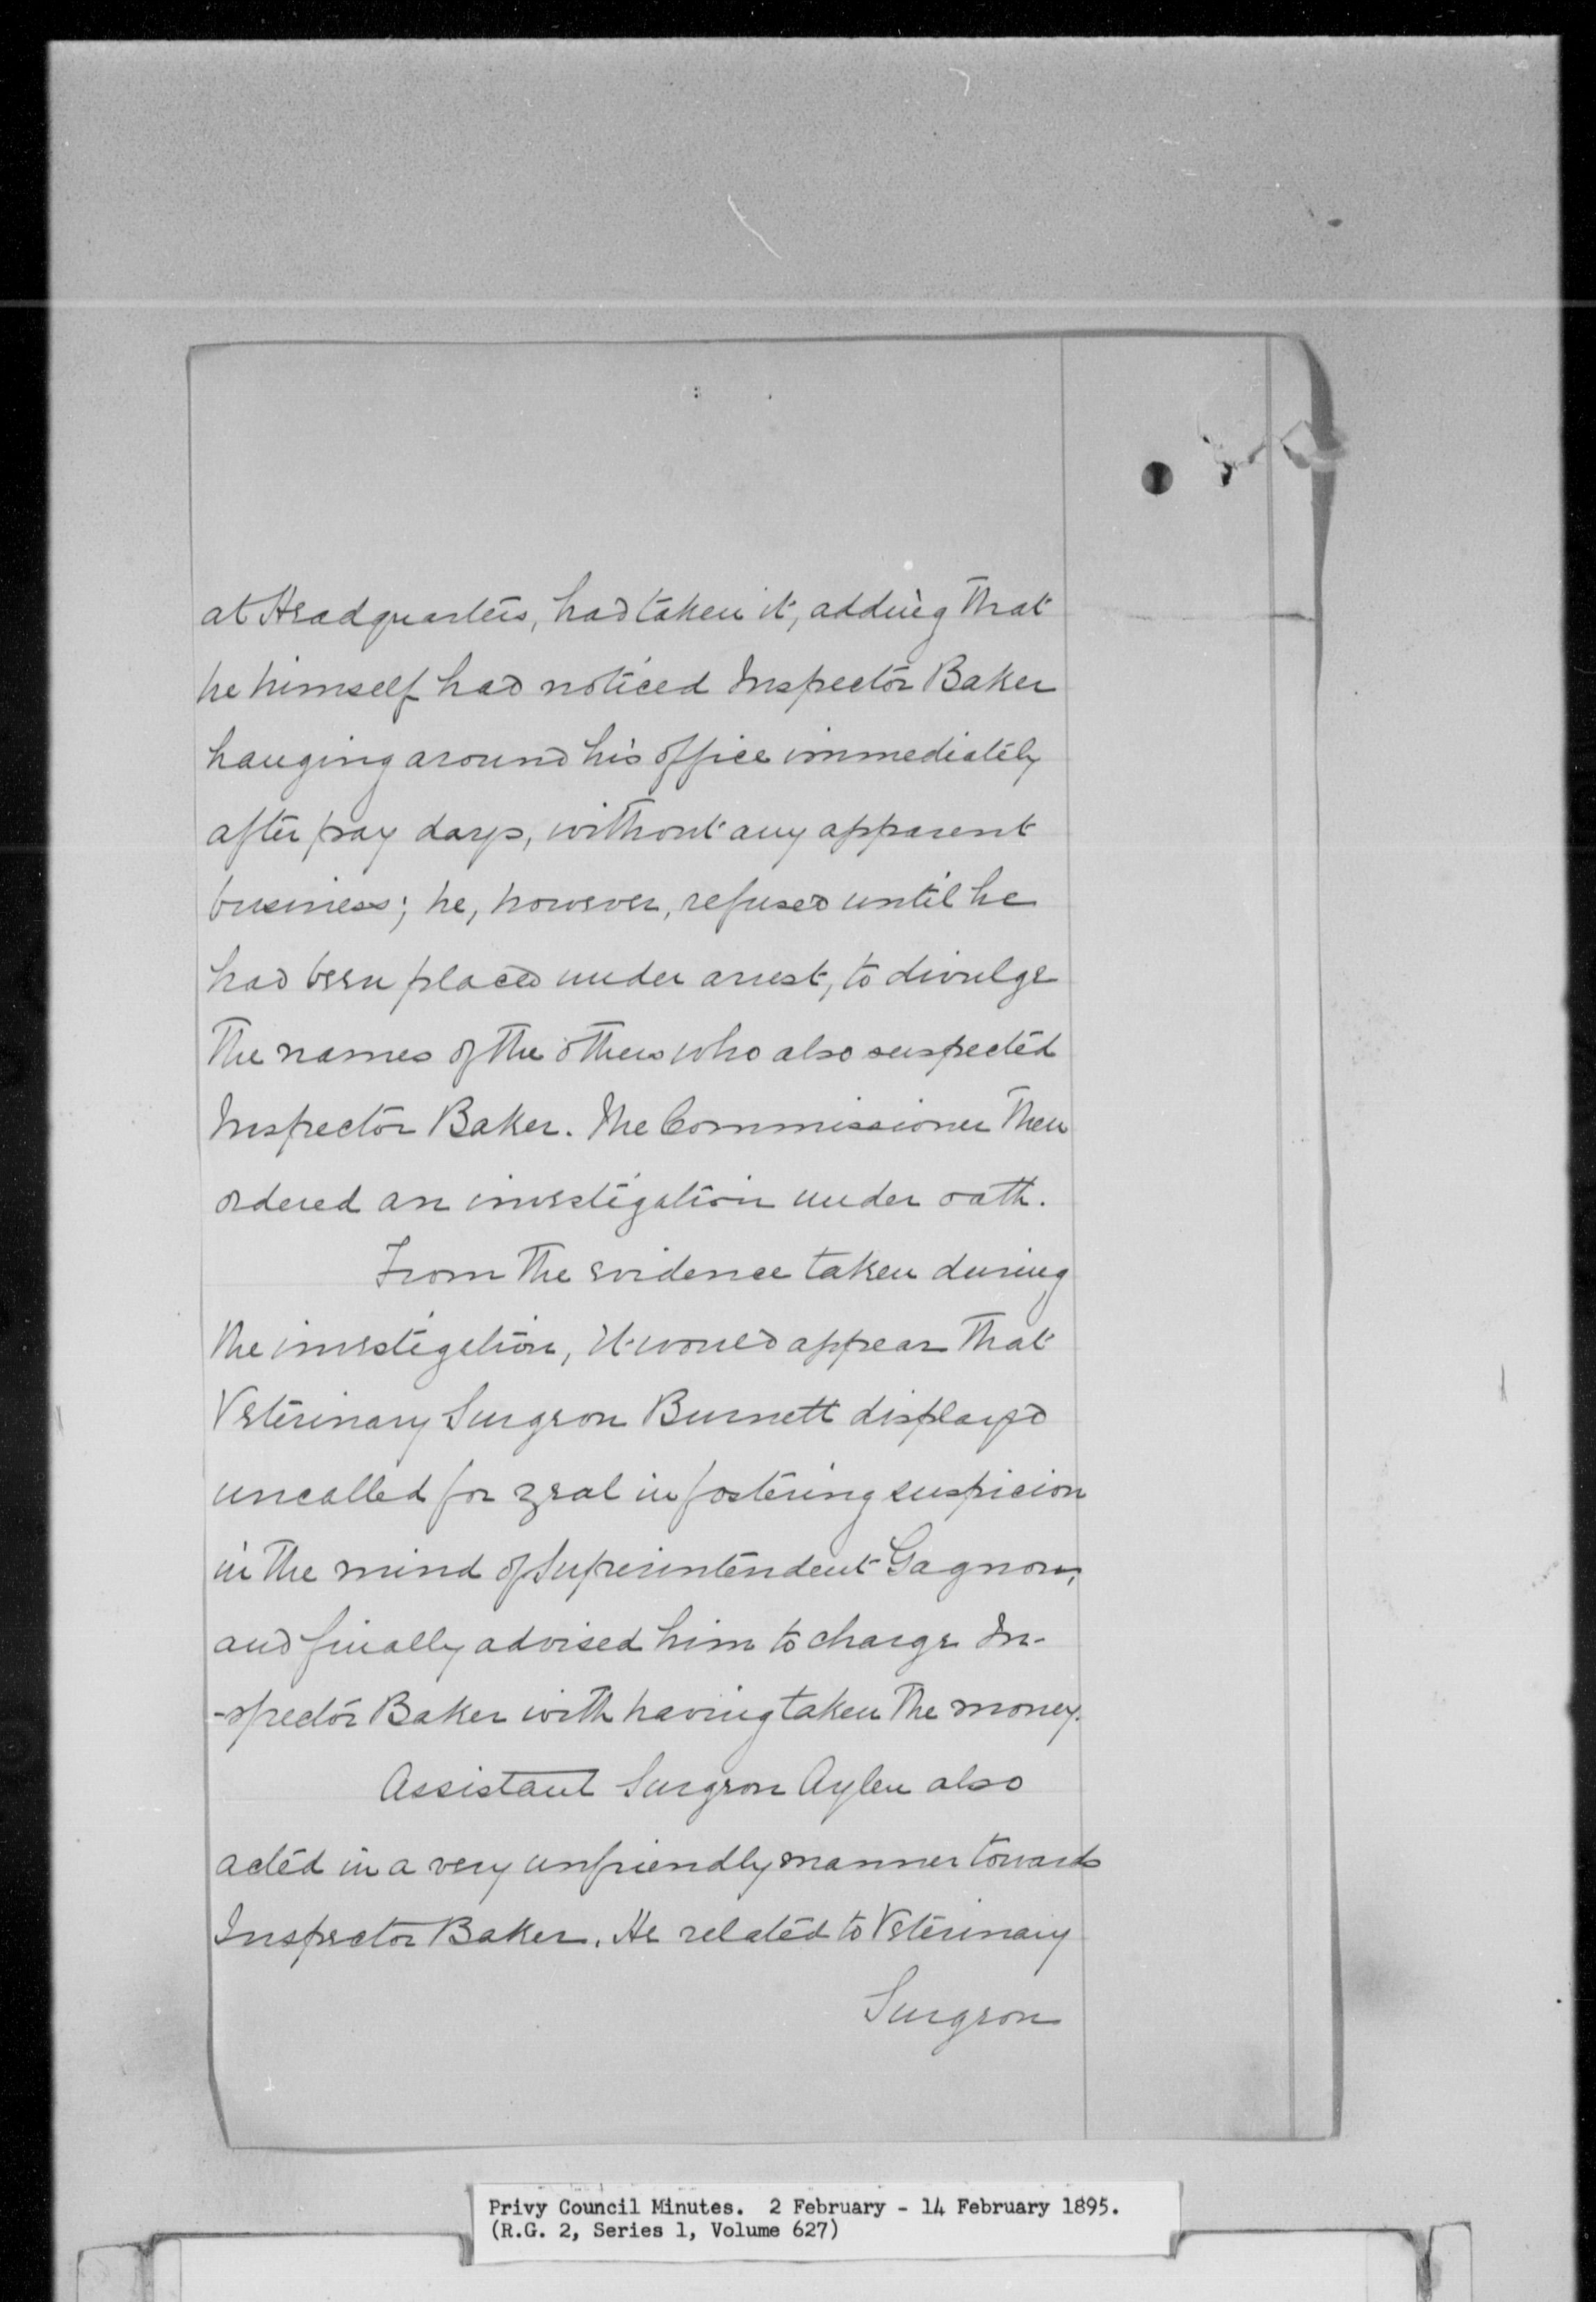 at Headquarters, had taken it, adding that
he himself had noticed Inspector Baker
hanging around his office immediately
after pay days, without any apparent
business; he, however, refused until he
had been placed under arrest, to divulge
the names of the others who also suspected
Inspector Baker. The Commissioner then
ordered an investigation under oath.
From the evidence taken during
the investigation, it would appear that
Veterinary Surgeon Burnett displayed
uncalled for zeal in fostering suspicion
in the mind of Superintendent Gagnon,
and finally advised him to charge In-
-spector Baker with having taken the money.
Assistant Surgeon Aylen also
acted in a very unfriendly manner towards
Inspector Baker. He related to Veterinary
Surgeon
Privy Council Minutes. 2 February - 14 February 1895.
(R.G. 2, Series 1, Volume 627)